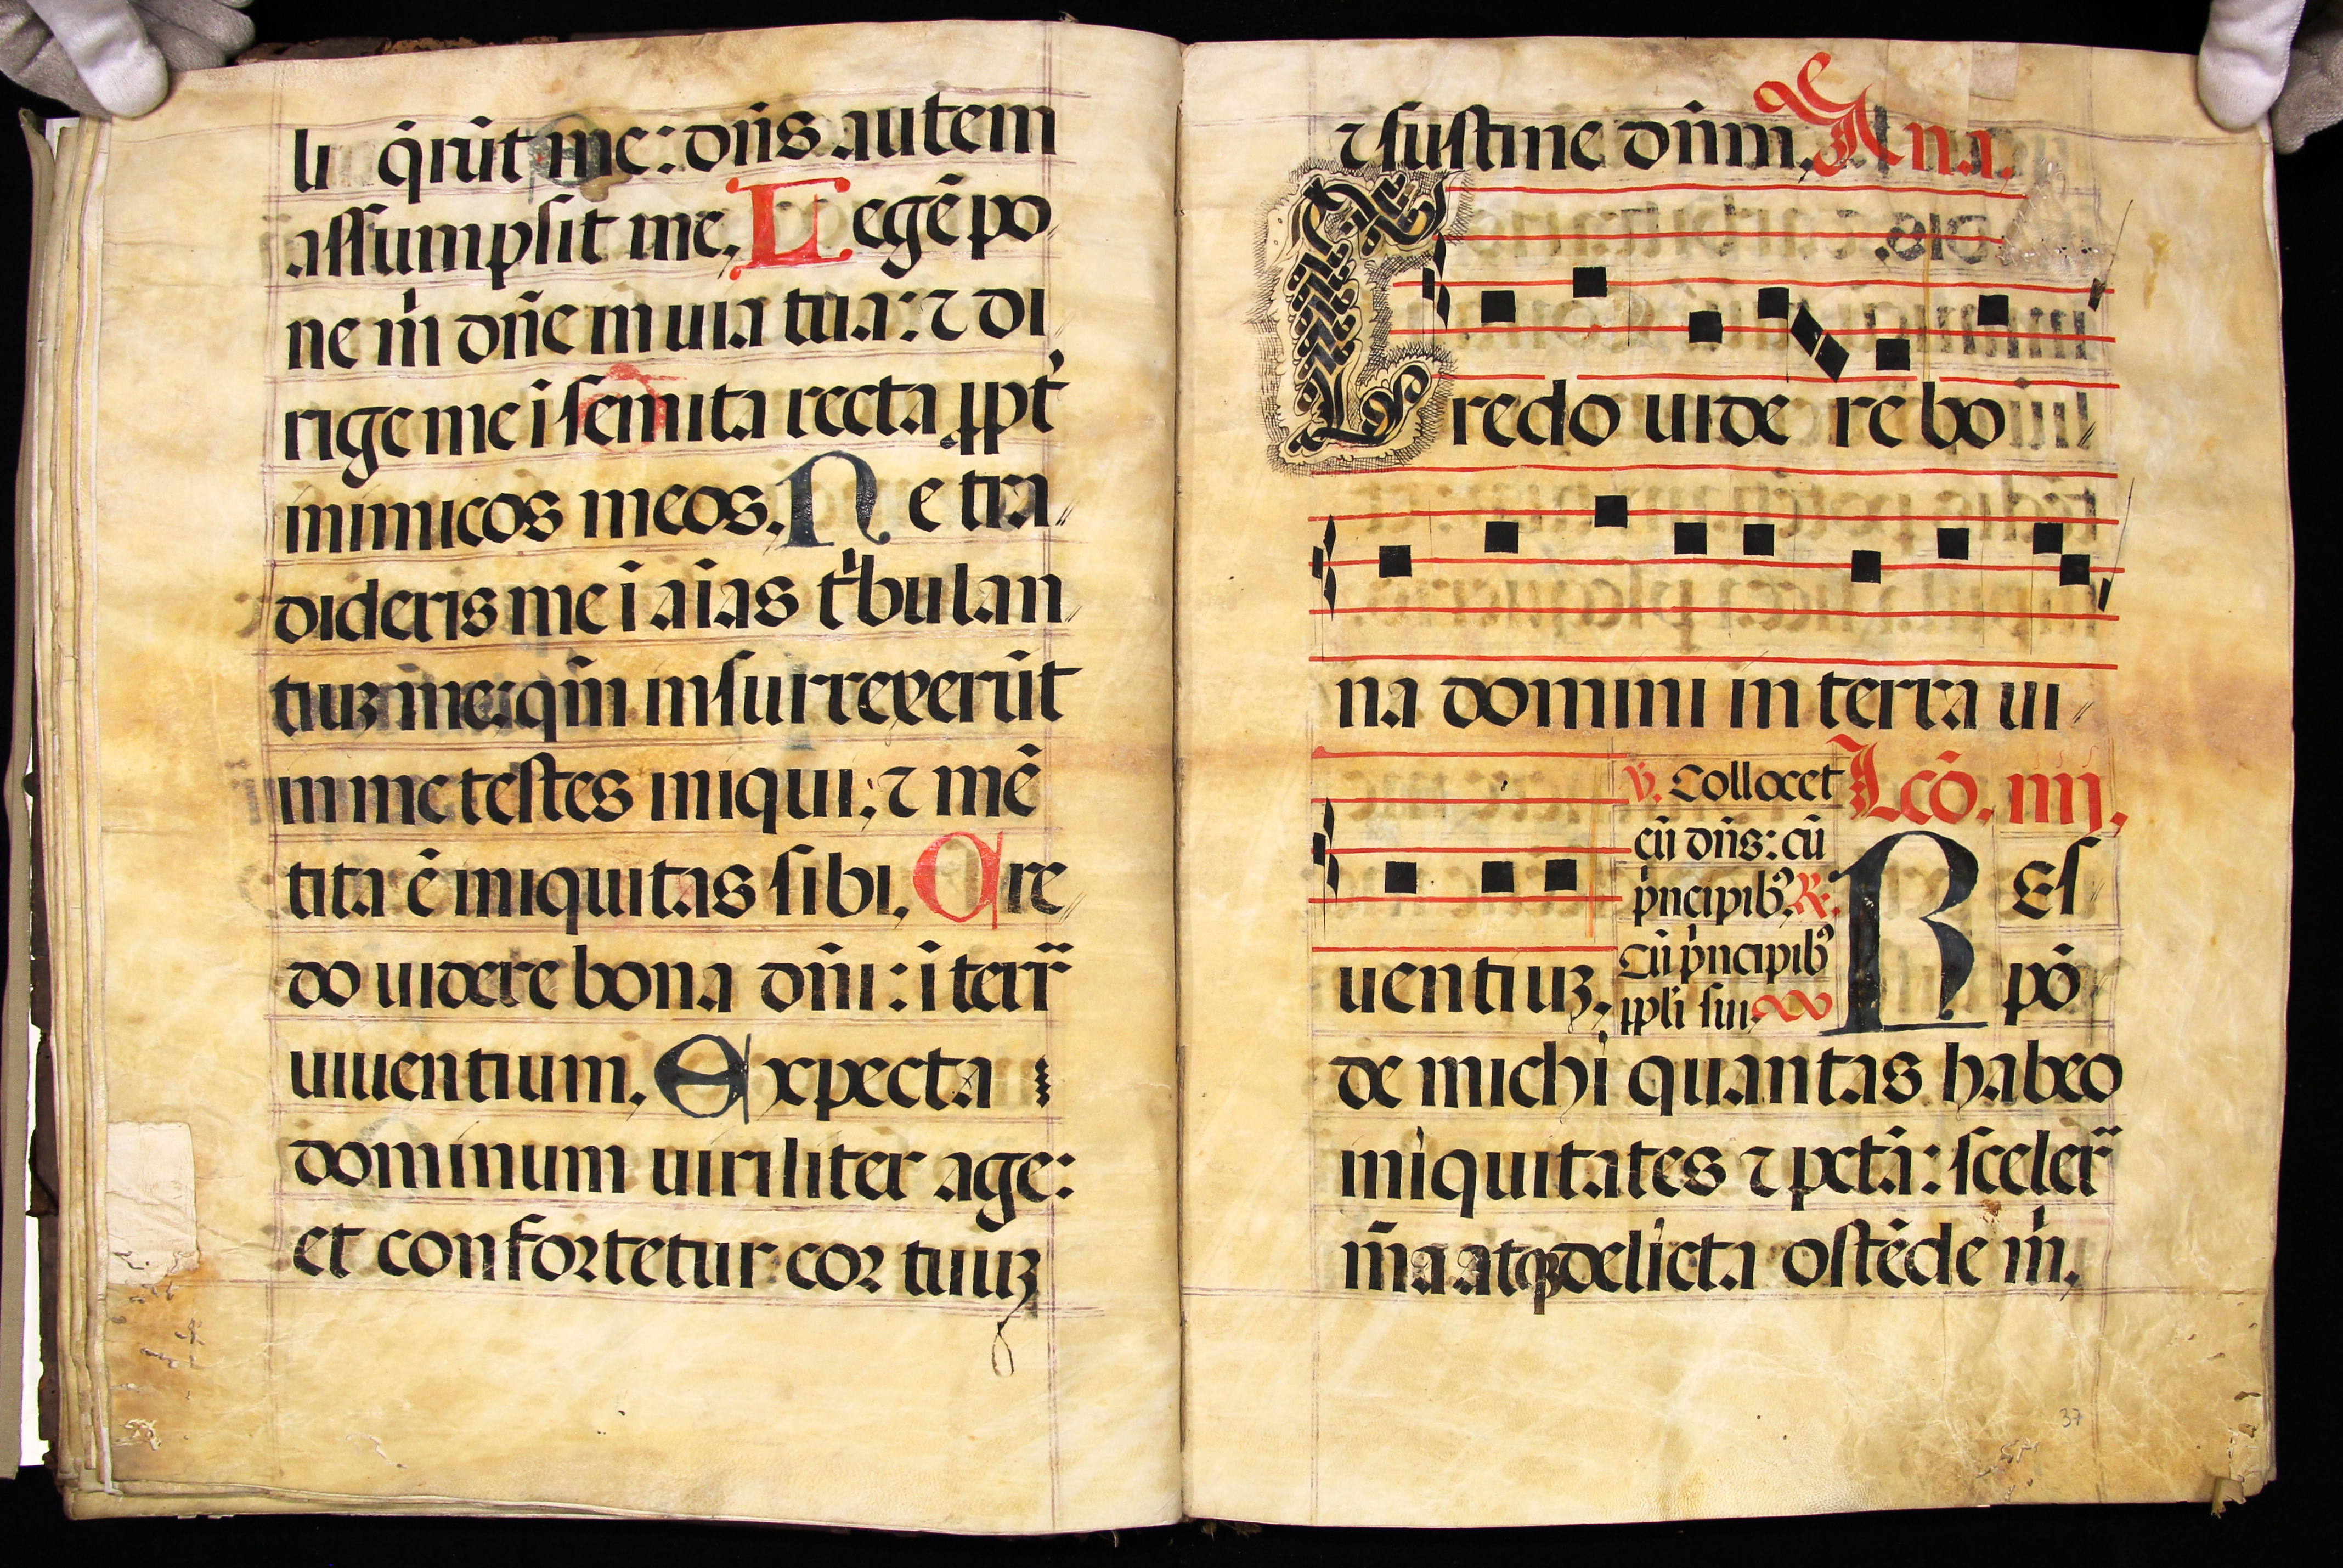 li q̄rūt me: dn̄s autem
assumpsit me. Legē po
ne m̄ dn̄e in uia tua: ⁊ di
rige me ī semita recta ꝓpt̕
inimicos meos. Ne tra⸗
dideris me ī aīas tͥbulan
tiuꝫ me: qm̄ insurrexerūt
in me testes iniqui: ⁊ mē
tita ē iniquitas sibi. Cre⸗
do uidere bona dn̄i: ī terr̄
uiuentium. Expecta
dominum uiriliter age:
et confortetur cor tuuꝫ
⁊ sustine dn̄m. Ana.
Credo uide re bo
na domini in terra ui⸗
uentiuꝫ.
℣. Collocet
cū dn̄s: cū
pͥncipibꝰ. ℞.
Cū pͥncipibꝰ
ppl̄i sui.
Lcō. iiij.
Res⸗
pō
de michi quantas habeo
iniquitates ⁊ pctā: sceler̄
m̄a atqꝫ delicta ostēde m̄.
37